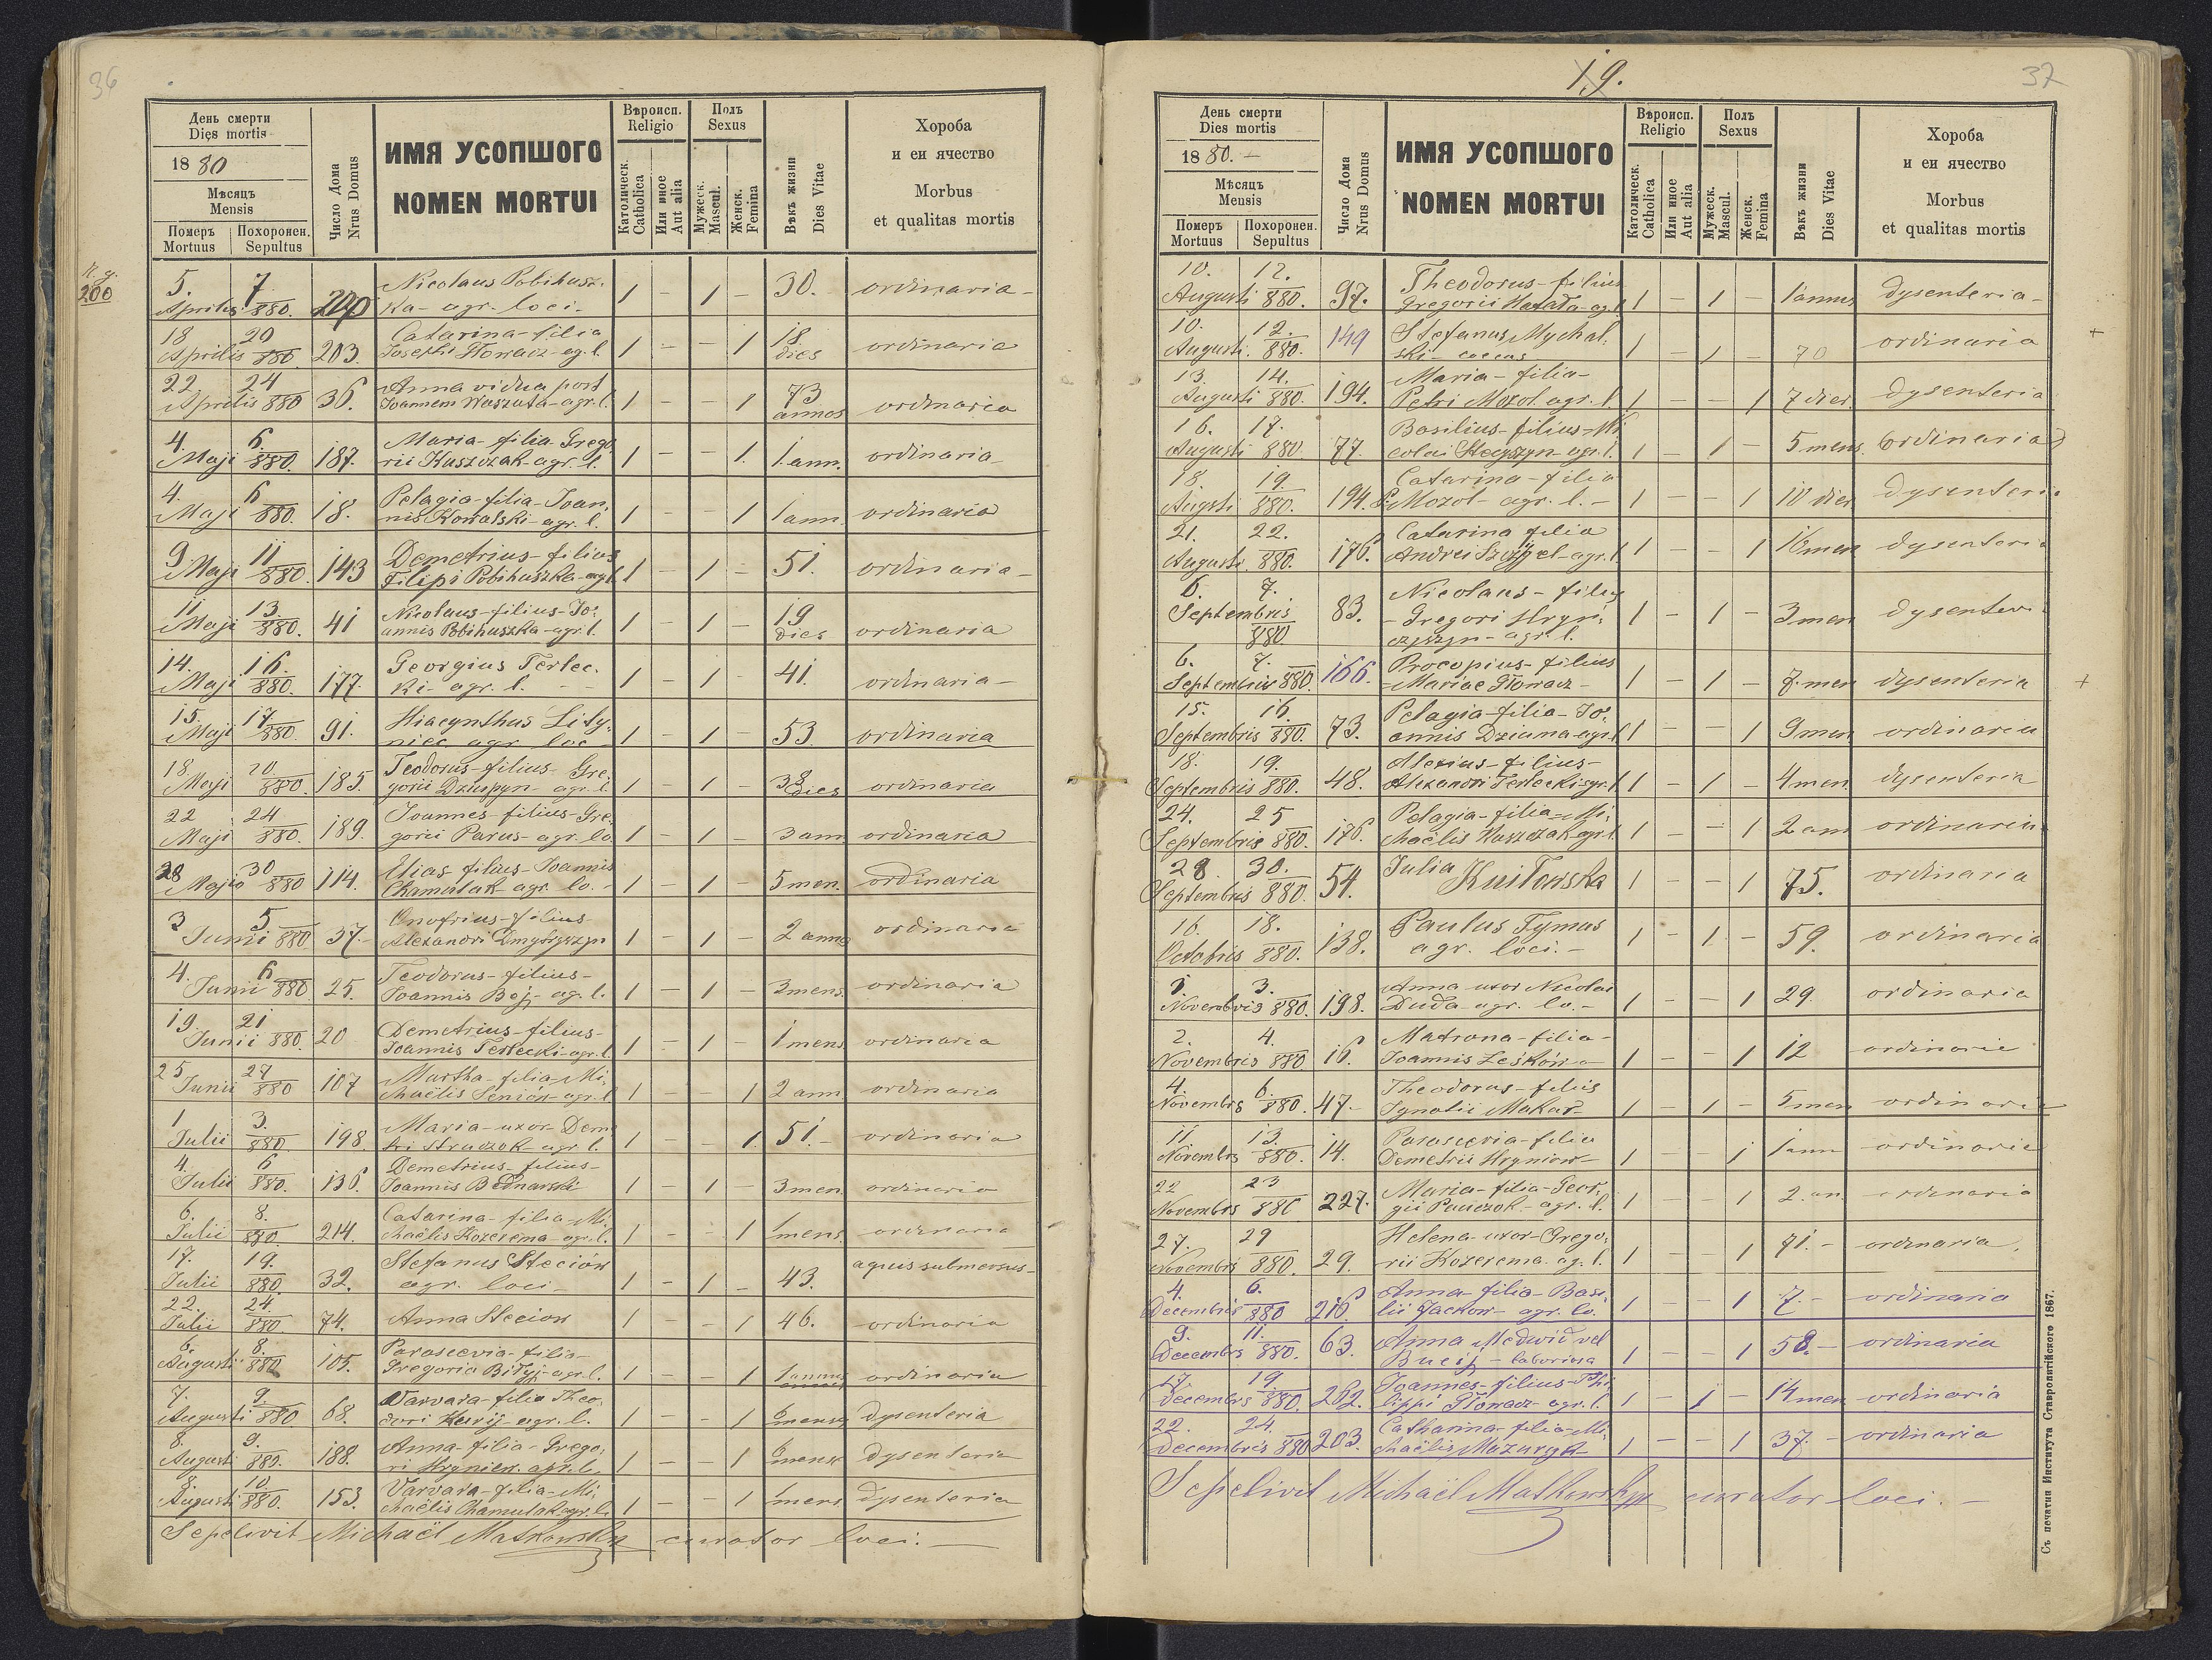 36
День смерти
Dies mortis
1880
Мѣсяцъ
Mensis
Померъ Похоронен.
Mortuus Sepultus
Число Дома
Nrus Domus
ИМЯ УСОПШОГО
NOMEN MORTUI
Вѣроисп.
Religio
Католическ.
Catholica
Или иное
Aut alia
Полъ
Sexus
Мужеск.
Mascul.
Женск.
Femina
Вѣкъ жизни
Dies Vitae
Хороба
и еи ячество
Morbus
et qualitas mortis
200
5. 7 Nicolaus Pobihusz-
Aprilis 880. ka - agr. loci. 1 - 1 - 30. ordinaria
18 20 Catarina - filia 18
Aprilis 880 203. Josephi Głowacz - ag. l. 1 - - 1 dies ordinaria
22 24 Anna vidua post 73
Aprilis 880 36. Joannem Waszuta - agr. l. 1 - - 1 annos ordinaria
4. 6. Maria - filia Grego-
Maji 880. 187. rii Kuszczak - agr. l. 1 - - 1. 1. ann. ordinaria
4. 6 Pelagia - filia - Joan-
Maji 880. 18. nis Kowalski - agr. l. 1 - - 1 1 ann. ordinaria
9 11 Demetrius - filius
Maji 880. 143 Filipi Pobihuszka - agr. l. 1 - 1 - 51. ordinaria
11 13. Nicolaus - filius - Jo- 19
Maji 880. 41 annis Pobihuszka - agr. l. 1 - 1 - dies ordinaria
14. 16. Georgius Terlec-
Maji 880. 177. ki - agr. l. 1 - 1 - 41. ordinaria
15. 17. Hiacynthus Lity-
Maji 880. 91. niec agr. loc 1 - 1 - 53. ordinaria
18 20 Teodorus - filius - Gre-
Maji 880. 185. gorii - agr. l. 1 - 1 - 38 dies ordinaria
22 24 Joannes - filius - Gre-
Maji 880. 189. gorii Parus - agr. lo 1 - 1 - 3 ann. ordinaria
28 30 Elias filius - Joannis
Majio 880 114. Chamulak agr. lo. 1 - 1 - 5 men. ordinaria
3 5 Onofrius - filius
Junii 880 37. Alexandri Dmytryszyn 1 - 1 - 2 anno ordinaria
4. 6 Teodorus - filius -
Junii 880 25. Joannis Bej - ag. l. 1 - 1 - 3 mens. ordinaria
19. 21 Demetrius - filius -
Junii 880. 20 Joannis Terlecki - agr. l. 1 - 1 - 1 mens. ordinaria
25 27 Martha - filia - Mi-
Junii 880 107 chaëlis Senión - agr. l. 1 - - 1 2 ann. ordinaria
1 3. Maria - uxor - Deme
Julii 880. 198 tri Struczok - agr. l. 1 - - 1. 51. - ordinaria
4. 6 Demetrius - filius -
Julii 880. 136. Joannis Bednarski 1 - 1 - 3 men. ordinaria
6. 8. Catarina - filia - Mi-
Julii 880. 214. chaëlis Kozerema - agr. l. 1 - - 1 1 mens. ordinaria
17. 19. Stefanus Steciów
Julii 880. 32. agr. loci 1 - 1 - 43. aquis submersus
22. 24.
Julii 880. 74. Anna Steciow 1 - - 1 46. ordinaria
6. 8. Parascevia - filia -
Augusti 880 105. Gregorio - agr. l. 1 - - 1 1 annus ordinaria
7. 9. Varvara - filia Theo- 6
Augusti 880 68. dori - agr. l. 1 - - 1 menses dysenteria
8. 9. Anna - filia - Grego- 6
Augusti 880. 188. ri Hryniew. agr. l. 1 - - 1 mense dysenteria
8 10 Varvara - filia - Mi- 1
Augusti 880. 153. chaëlis Chamulak agr. l. 1 - - 1 mens dysenteria
Sepelivit Michaël Matkowskyj curator loci. -
19.
37
День смерти
Dies mortis
1880. -
Мѣсяцъ
Mensis
Померъ Похоронен.
Mortuus Sepultus
Число Дома
Nrus Domus
ИМЯ УСОПШОГО
NOMEN MORTUI
Вѣроисп.
Religio
Католическ.
Catholica
Или иное
Aut alia
Полъ
Sexus
Мужеск.
Mascul.
Женск.
Femina
Вѣкъ жизни
Dies Vitae
Хороба
и еи ячество
Morbus
et qualitas mortis
10. 12. Theodorus - filius
Augusti 880. 97. Gregorii Hałała - ag. l. 1 - 1 - 1 annus dysenteria
10. 12. Stefanus Mychal-
Augusti. 880. 149 ski - coecus 1 - 1 - 70 ordinaria +
13. 14. Maria - filia -
Augusti 880. 194. Petri Mozol. agr. l. 1 - - 1 7 dier. dysenteria
16. 17. Basilius - filius - Ni-
Augusti 880. 77. colai - agr. l. 1 - 1 - 5 mens. ordinaria
18. 19. Catarina - filia
Augsti 880. 194. P. Mozol - agr. l. - 1 - - 1 10 dier. dysenteria
21. 22. Catarina filia
Augusti. 880. 176. Andrei - agr. l. 1 - - 1 16 men dysenteria
6. 7. Nicolaus - filius
Septembris 83. - Gregori Hryn- 1 - 1 - 3 men dysenteri
880 czyszyn - agr. l.
6. 7. Procopius - filius
Septembris 880. 166. - Mariae Głowacz - 1 - 1 - 7 men dysenteria +
15. 16. Pelagia - filia - Jo-
Septembris 880. 73. annis Dziuma - agr. l. 1 - - 1 9 men ordinaria
18. 19. Alexius - filius -
Septembris 880. 48. Alexandri Terlecki - agr. l. 1 - 1 - 4 men. dysenteria
24. 25 Pelagia - filia - Mi-
Septembris 880. 176. chaëlis Kuszczak - agr. l. 1 - - 1 2 ann ordinaria
28. 30. Julia
Septembris 880. 54. Kuiłowska 1 - - 1 75. ordinaria
16. 18. Paulus Tymus
Octobris 880. 138. agr. loci. - 1 - 1 - 59. ordinaria
1. 3. Anna uxor Nicolai
Novembris 880. 198. Duda agr. lo. - 1 - - 1 29. ordinaria
2. 4. Matrona - filia -
Novembris 880 16. Joannis Leśków - 1 - - 1 12 ordinaria
4. 6. Theodorus - filius
Novembris 880. 47. - Ignatii Makar - 1 - 1 - 5 men ordinaria
11 13. Parascevia - filia
Novembris 880. 14. Demetrii Hryniow - 1 - - 1 1 ann ordinaria
22 23 Maria - filia - Geor-
Novembris 880 227. gii Pańczok - agr. l. 1 - - 1 2. an ordinaria
27. 29 Helena - uxor - Grego-
Novembris 880. 29. rii Kozerema. ag. l. 1 - - 1 71. - ordinaria
4. 6. Anna - filia - Basi-
Decembris 880 216. lii Jackow - agr. lo. 1 - - 1 7. - ordinaria
9. 11. Anna Medwid vel
Decembris 880. 63. - laboriosa 1 - - 1 58. - ordinaria
17. 19 Joannes - filius - Phi
Decembris 880. 262. lippi Głowacz - agr. l. 1 - 1 - 14 men ordinaria
22. 24. Catharina - filia - Mi-
Decembris 880 203. chaëlis Mazuryk - 1 - - 1 37. - ordinaria
Sepelivit Michaël Matkowskyj curator loci. -
Съ печатни Института Ставропігійского 1867.